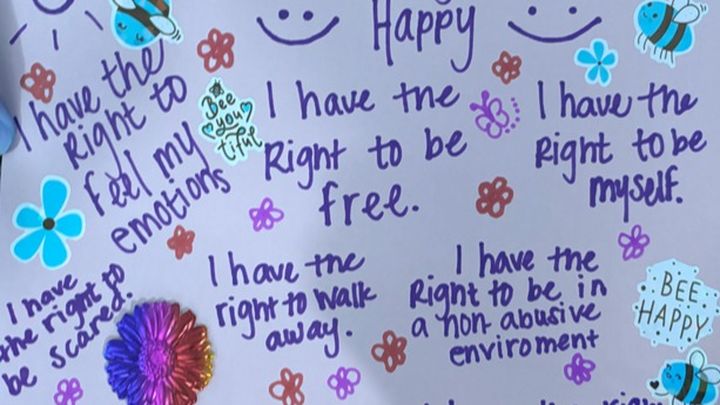 Happy
I have the
Right to
feel my
emotions
Bee
you
tiful
I have the
Right to be
free.
I have the
Right to be
myself.
I have
the right to
be scared.
I have the
right to walk
away.
I have the
Right to be in
a non abusive
enviroment
BEE
HAPPY